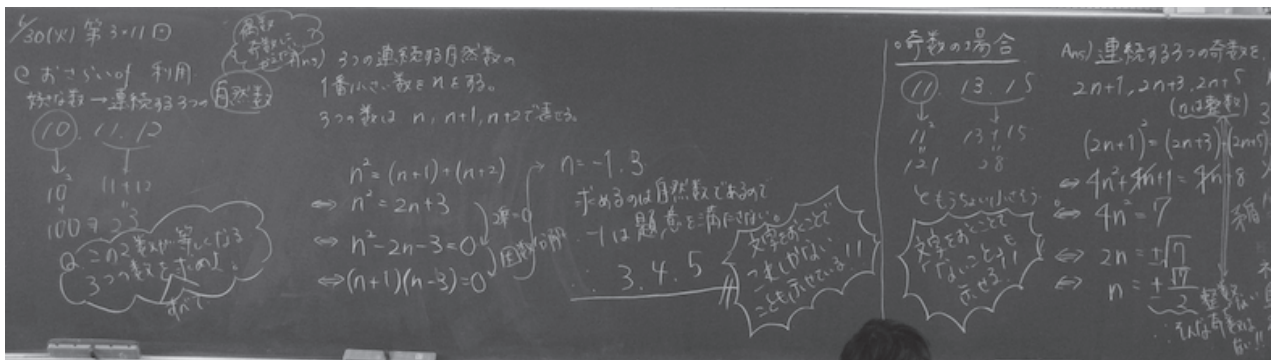 6/30(火) 第3・11回
おさらい of 利用
好きな数→連続する3つの自然数
10, 11, 12
10² 11+12
100 23
Q この2数が等しくなる
3つの数を求めよ。
すべて
偶数
奇数に
3つの連続する自然数の
1番小さい数をnとする。
3つの数は n, n+1, n+2で表せる。
n²=(n+1)+(n+2)
⇔ n²=2n+3
⇔ n²-2n-3=0
⇔(n+1)(n-3)=0
因数分解
n=-1.3
求めるのは自然数であるので
-1は題意を満たさない。
3.4.5
文字をおくことで
つしかない
ことも示せている!!
奇数の場合
11, 13, 15
11² 13+15
121 28
文字をおくことで
ないことも
示せる!
Ans) 連続する3つの奇数を
2n+1, 2n+3, 2n+5
(nは整数)
(2n+1)²=(2n+3)+(2n+5)
⇔ 4n²+4n+1=4n+8
⇔ 4n²=7
⇔ 2n=±√7
⇔ n=±√7/2
整数でない
そんな奇数は
ない!!